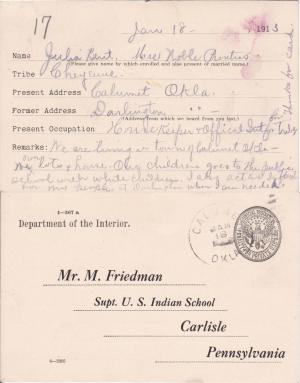 17
Jan 18 1913
Name Julia Bent. Mrs Noble Prentiss
(Please give name by which enrolled and also present or married name.)
Tribe Cheyenne
Present Address Calumet Okla.
Former Address Darlington " "
(Address from which we heard from you last.)
Present Occupation House Keeper + Official Intpr
Remarks: We are living in town of Calumet Okla
own
my lots + house. Our children goes to the public
school with white children. I any act as Intpr
for my people at Darlington when I am needed.
Thanks for card.
5-287 a
Department of the Interior.
CALUMET
JAN
18
OKLA
Mr. M. Friedman
Supt. U. S. Indian School
Carlisle
Pennsylvania